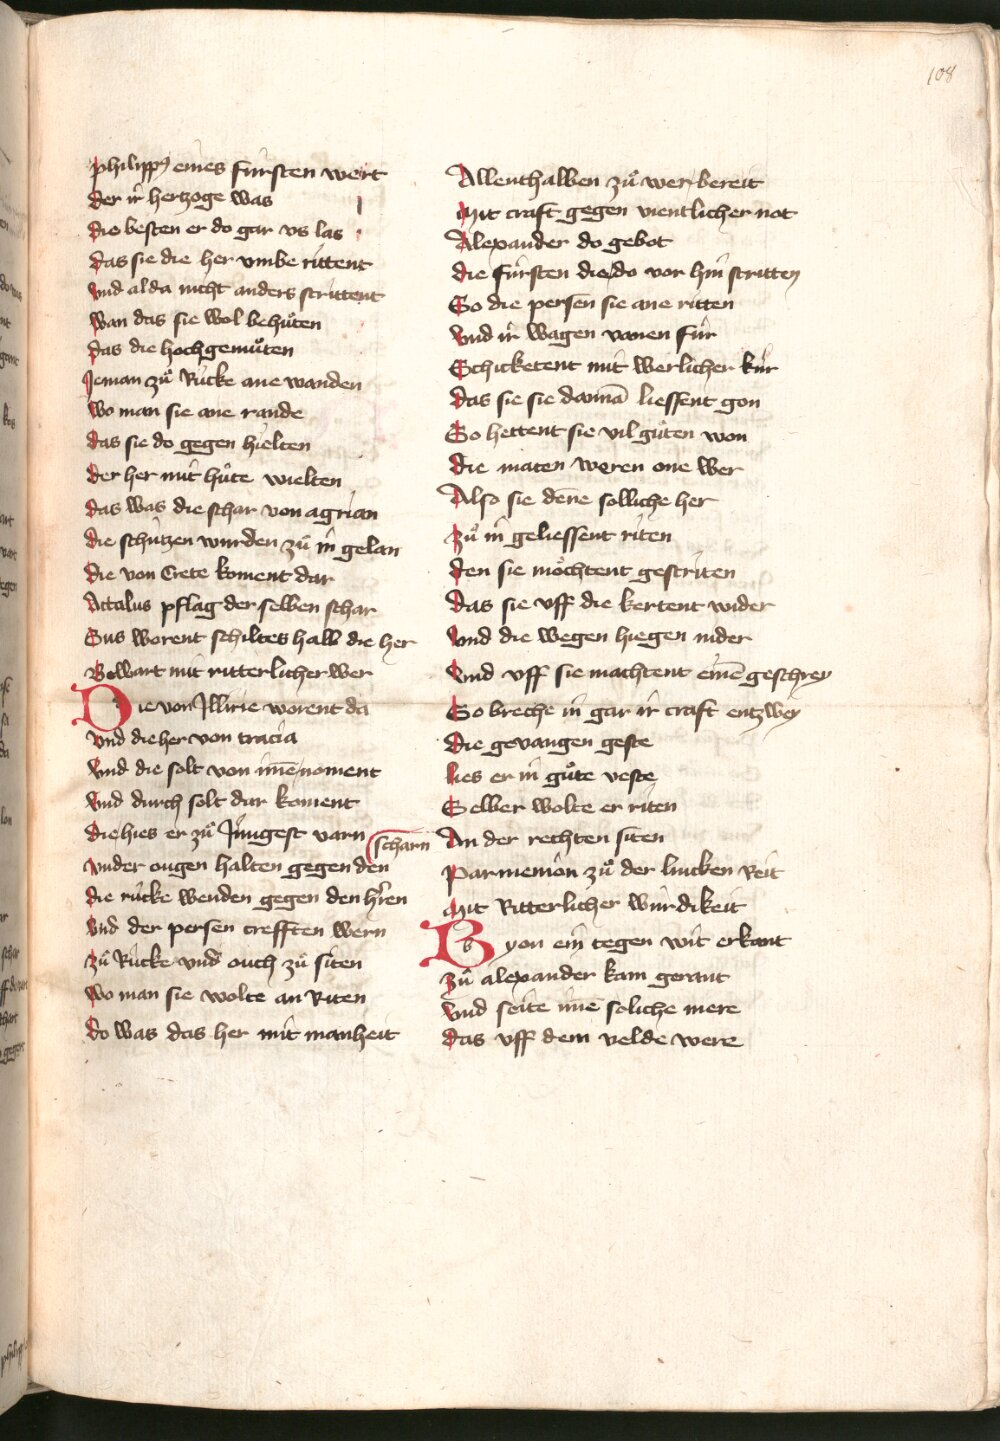 108
philippꝰ eines fúrsten wert
der ir hertzoge was
die besten er do gar vs las
das sie die her vmbe rittent
vnd al da nicht anders strittent
wan das sie wol behuͦten
das die hochgemuͦten
Jeman zuͦ Rúcke ane wanden
wo man sie ane rande
das sie do gegen hielten
der her mit huͦte wielten
das was die schar von agrian
die schútzen wurden zuͦ in gelan
die von Crete koment dar
Attalus pflag der selben schar
Sus worent schiltes halb die her
Bewart mit ritterlicher wer
Die von Jllirie worent da
vnd die her von tracia
vnd die solt von ime noment
vnd durch solt dar koment
die hies er zuͦ Júngest varn
vnder ougen halten gegen den scharn
die rúcke wenden gegen den hren
vnd der persen trefften wern
zuͦ Rúcke vnd ouch zuͦ siten
wo man sie wolte an Riten
do was das her mit manheit
Allenthalben zuͦ wer bereit
Mit craft gegen vientlicher not
Alexander do gebot
die fúrsten die do vor him stritten
So die persen sie ane ritten
vnd ir wagen vanen fúr
Schicketent mit werlicher kúr
das sie sie dannā liessent gon
So hettent sie vil guͦten won
die maten weren one wer
Also sie dene solliche her
zuͦ in geliessent riten
den sie moͤchtent gestriten
das sie vff die kertent wider
vnd die wegen hiegen nider
vnd vff sie machtent einē geschrey
So breche in gar ir craft entzwey
die gevangen geste
lies er in guͦte veste
Selber wolte er riten
An der rechten siten
Parmenion zuͦ der lincken Reit
Mit Ritterlicher wúrdikeit
Byon ein tegen wit erkant
zuͦ alexander kam gerant
vnd seite ime soliche mere
das vff dem velde were